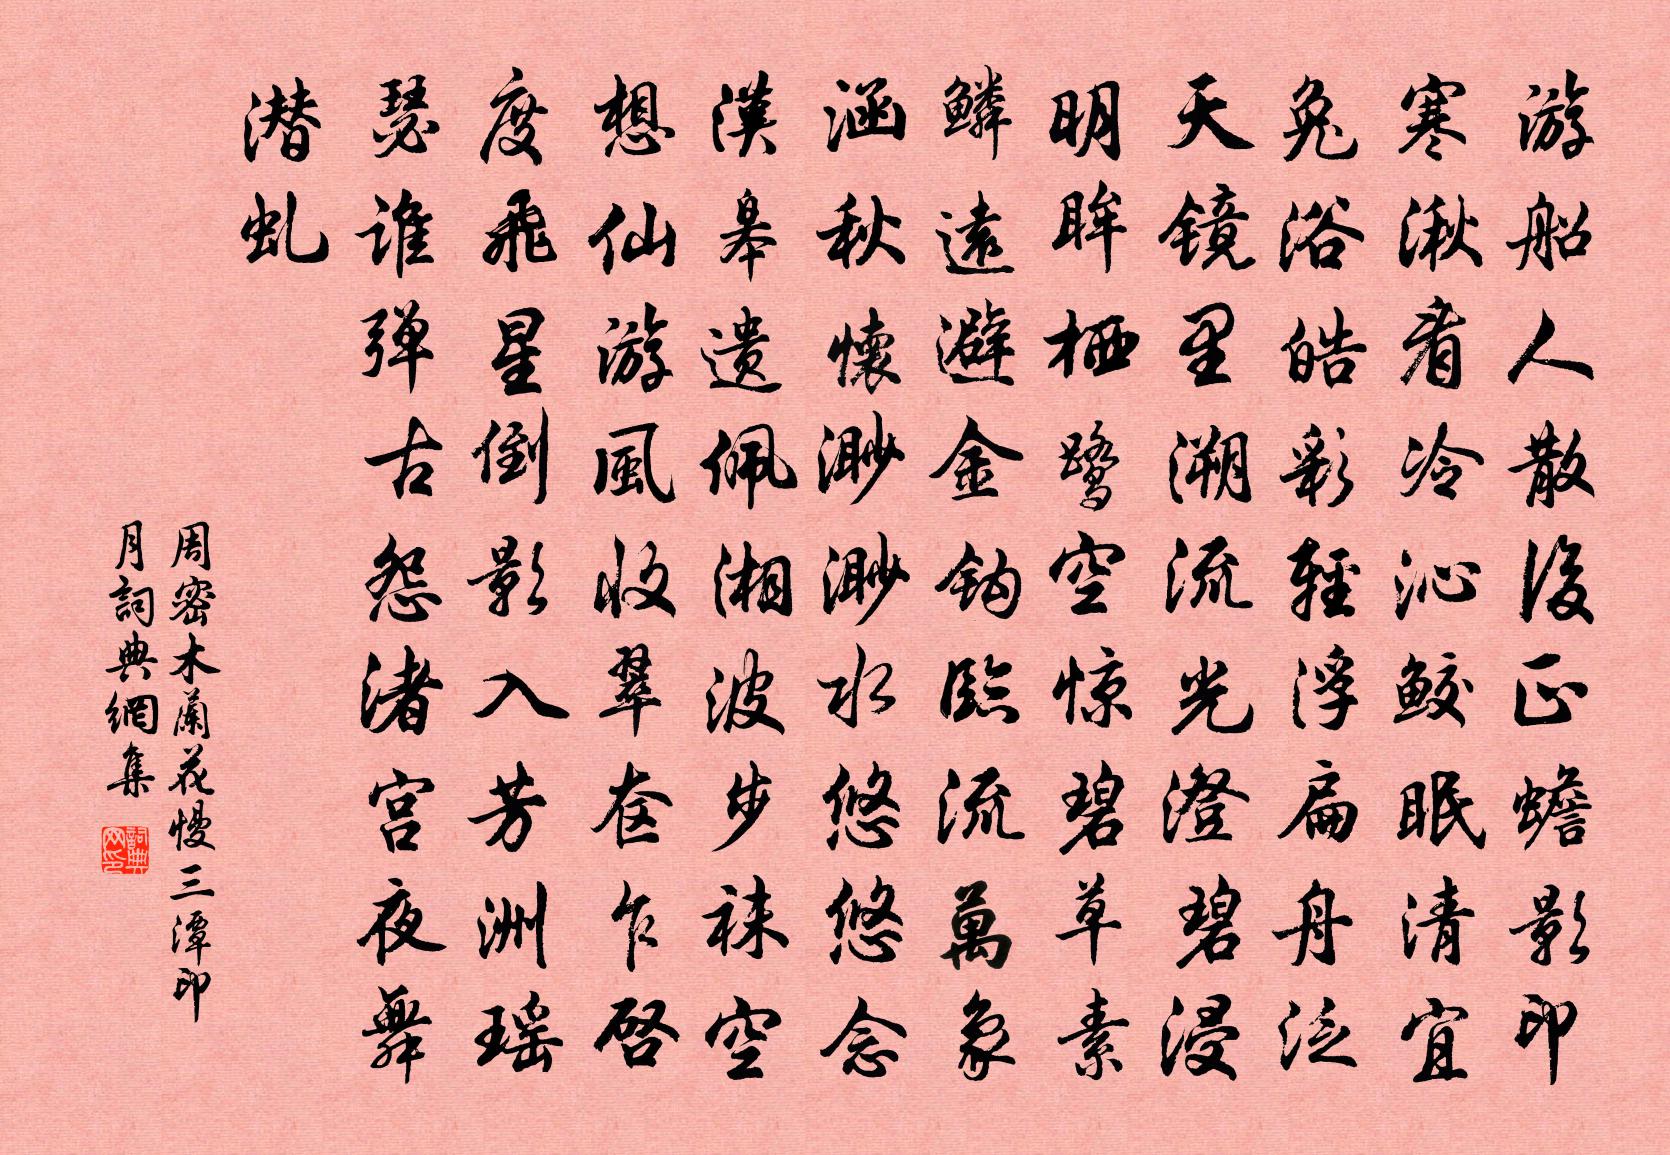 游船人散後正蟾影印
寒湫看冷沁鲛眠清宜
兔浴皓彩輕浮扁舟泛
天镜里溯流光澄碧浸
明眸栖鹭空惊碧草素
鳞遠避金钩臨流萬象
涵秋懷渺渺水悠悠念
漢皋遗佩湘波步袜空
想仙游風收翠奁乍启
度飛星倒影入芳洲瑶
瑟谁弹古怨渚宫夜舞
潜虬
周密木蘭花慢三潭印
月詞典網集
詞典网印